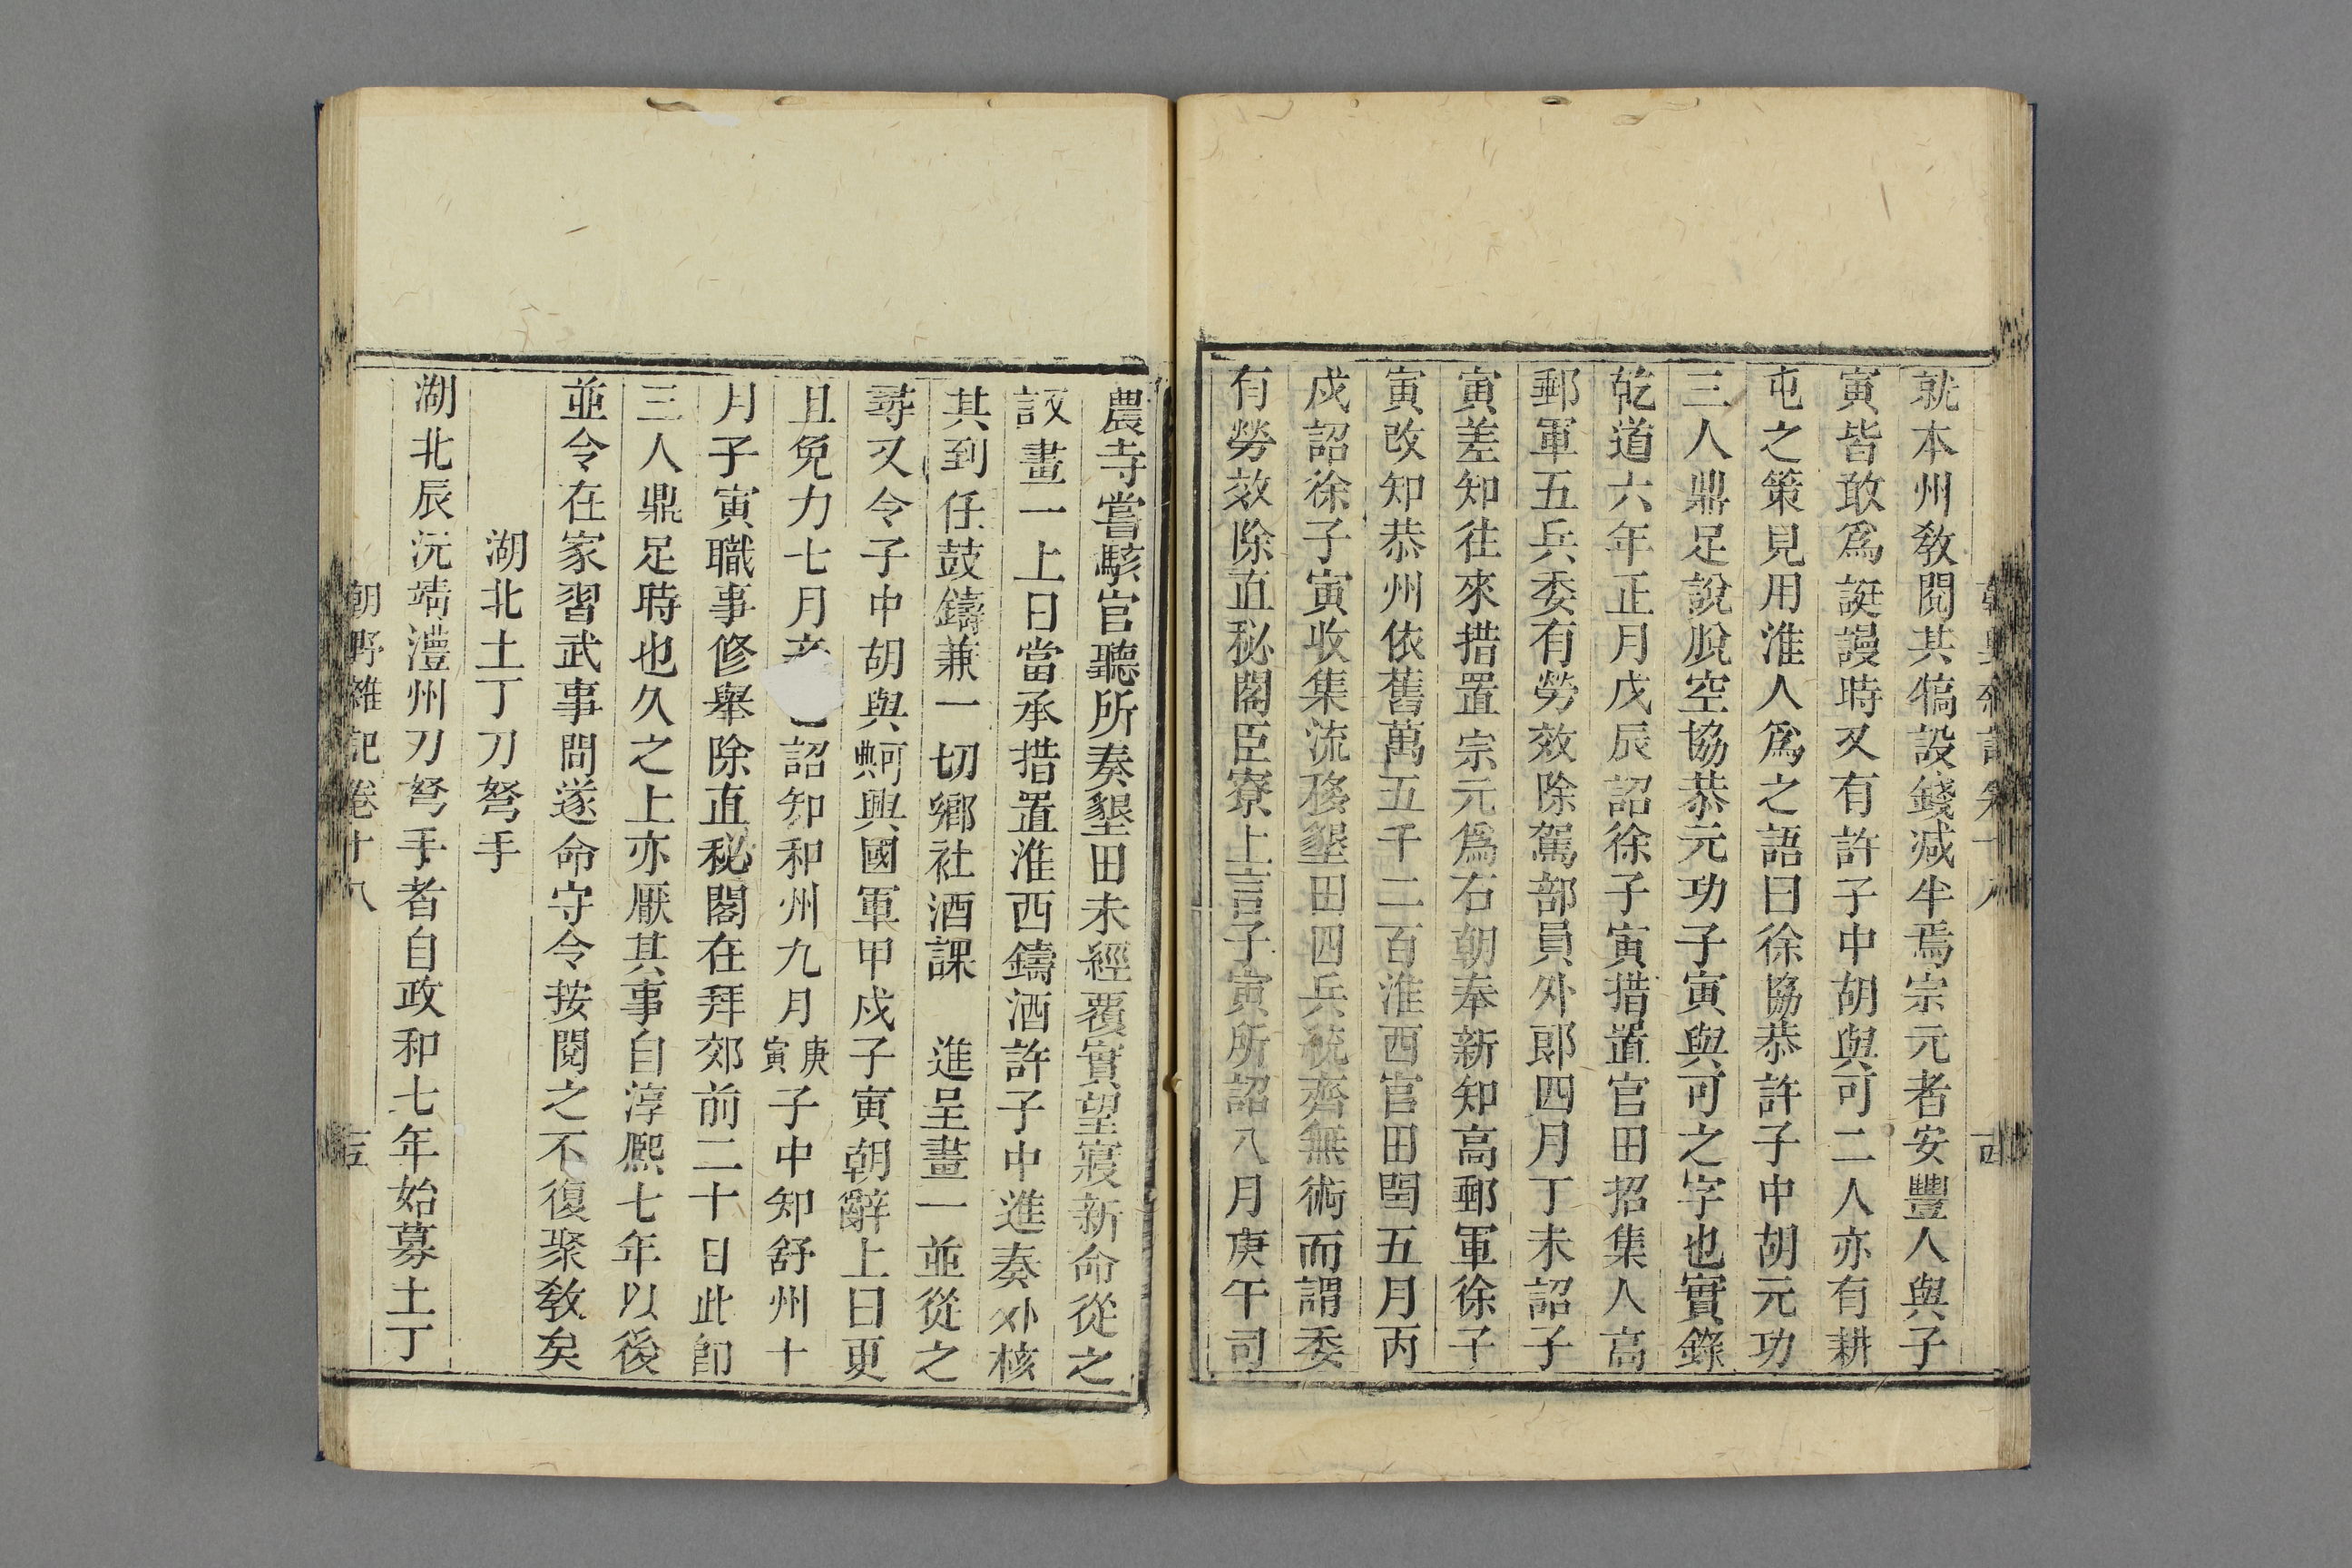 就本州敎閱其犒設錢减半焉宗元者安豐人與子
寅皆敢爲誕謾時又有許子中胡與可二人亦有耕
屯之策見用淮人爲之語曰徐協恭許子中胡元功
三人鼎足說脫空協恭元功子寅與可之字也實錄
乾道六年正月戊辰詔徐子寅措置官田招集人高
郵軍五兵委有勞效除駕部員外郎四月丁未詔子
寅差知往來措置宗元爲右朝奉新知高郵軍徐子
寅改知恭州依舊萬五千二百淮西官田閏五月丙
戌詔徐子寅收集流移墾田四兵統齊無術而謂委
有勞效除直秘閣臣寮上言子寅所詔八月庚午司
農寺嘗駭官聽所奏墾田未經覆實望寢新命從之
詼畫一上日當承措置淮西鑄酒許子中進奏外核
其到任鼓鑄兼一切鄉社酒課 進呈畫一並從之
尋又令子中胡與興國軍甲戌子寅朝辭上曰更
且免力七月 詔知和州九月庚寅子中知舒州十
月子寅職事修舉除直秘閣在拜郊前二十日此卽
三人鼎足時也久之上亦厭其事自淳熙七年以後
並令在家習武事間遂命守令按閱之不復聚敎矣
湖北土丁刀弩手
湖北辰沅靖澧州刀弩手者自政和七年始募土丁
朝野雜記卷十八